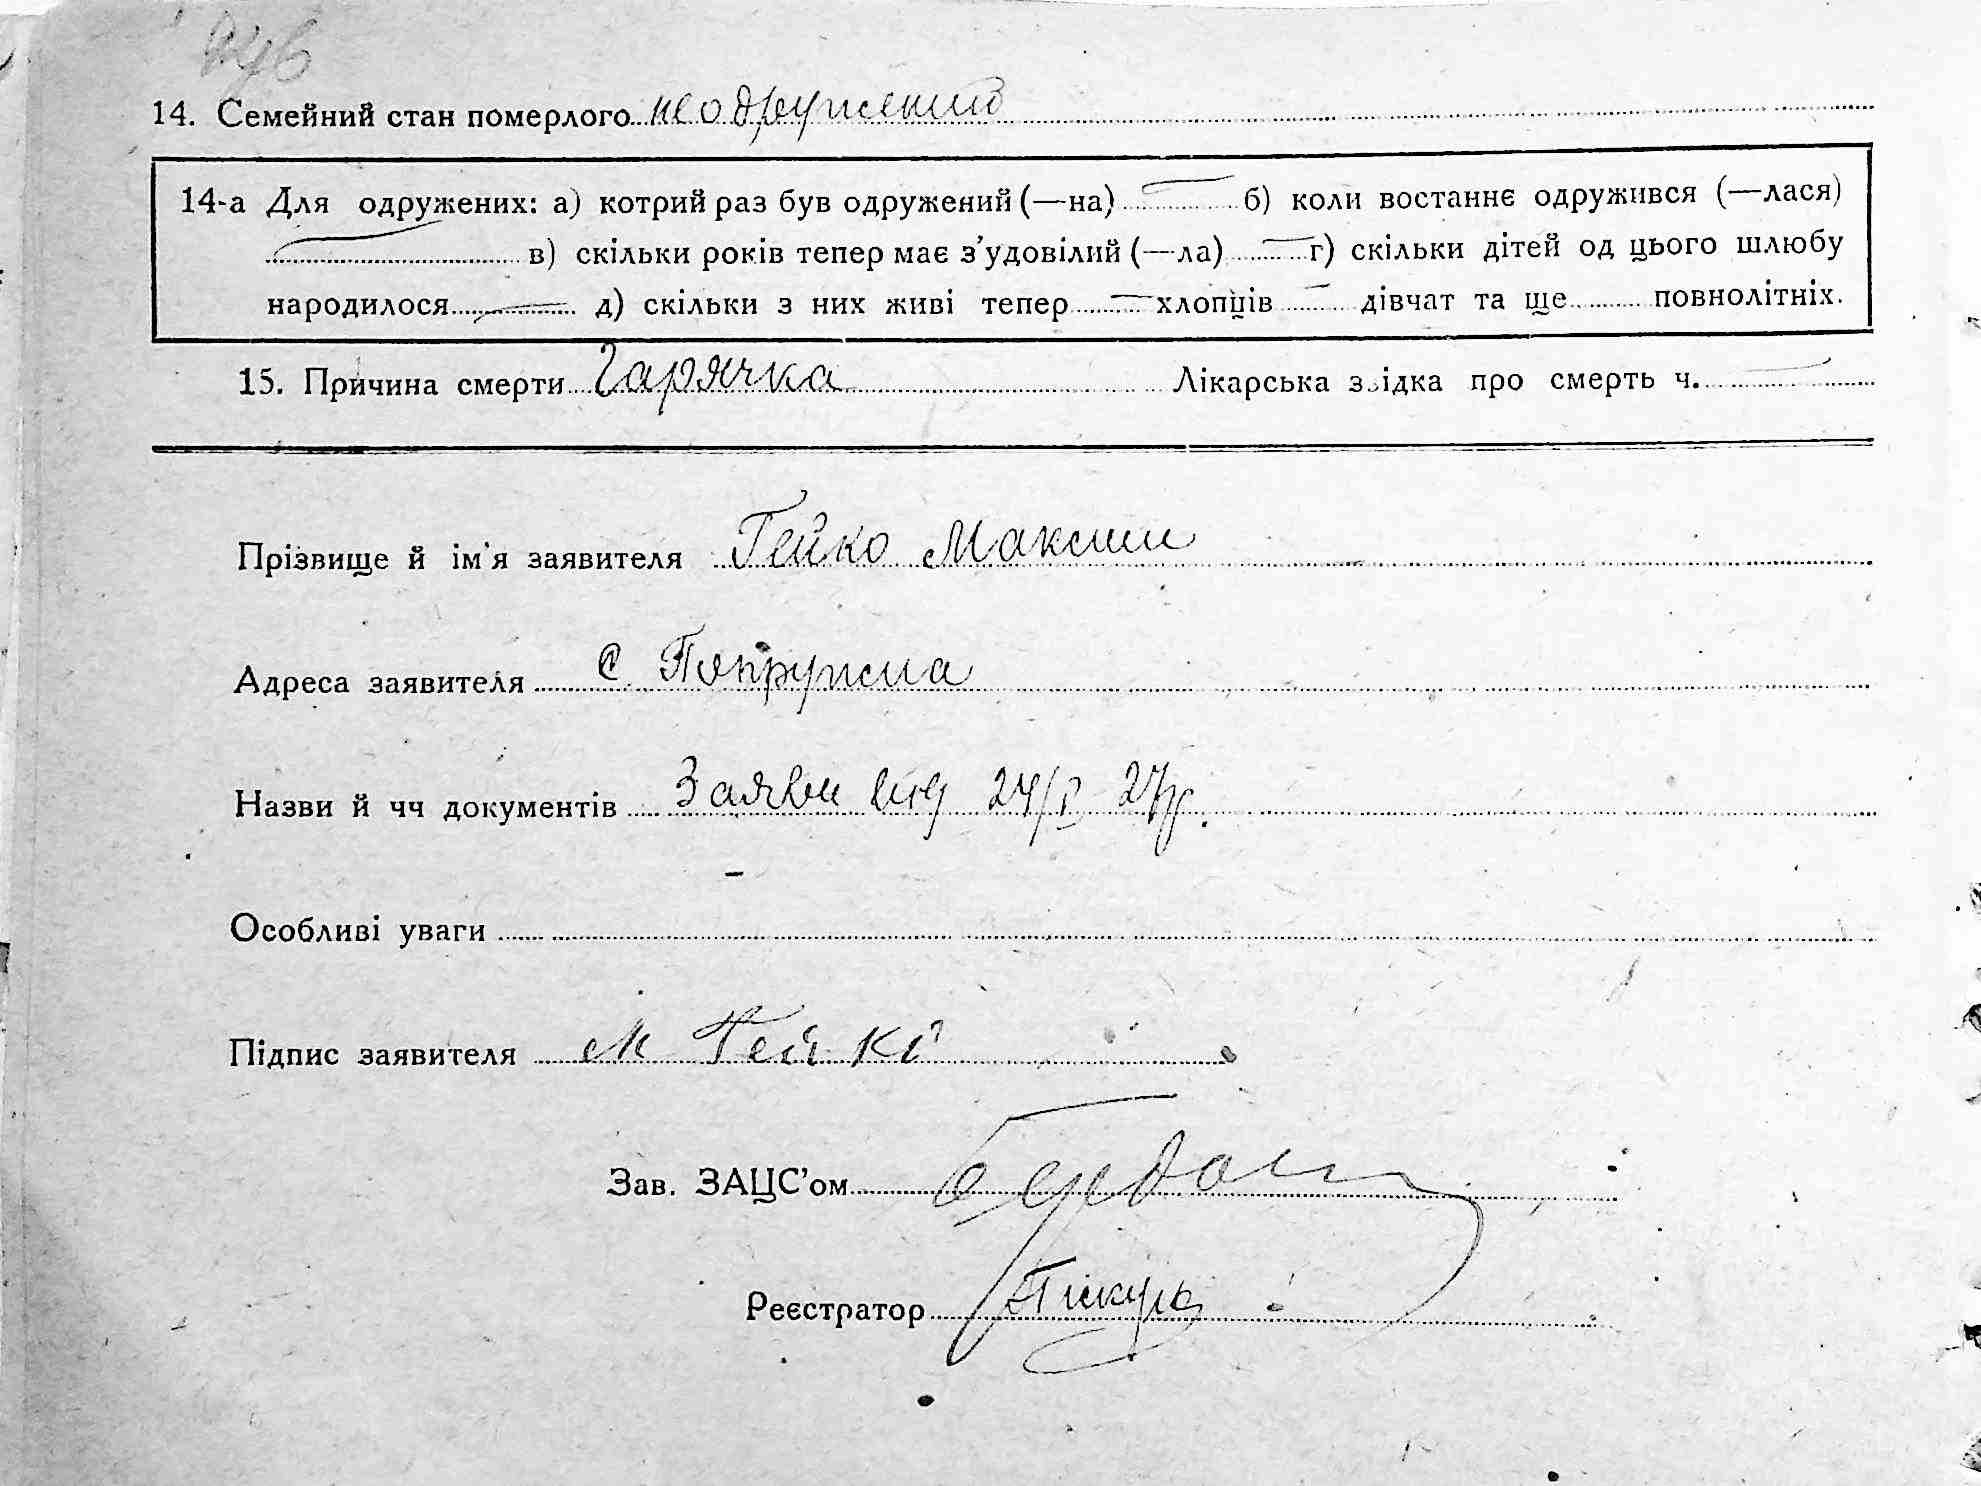 14. Семейний стан померлого неодружений
14-а Для одружених: а) котрий раз був одружений (—на) б) коли востаннє одружився (—лася)
в) скільки років тепер має з’удовілий (—ла) г) скільки дітей од цього шлюбу
народилося д) скільки з них живі тепер хлопців дівчат та ще повнолітніх.
15. Причина смерти Гарячка Лікарська звідка про смерть ч.
Прізвище й ім'я заявителя Гейко Максим
Адреса заявителя с Попружна
Назви й чч документів Заява від 24/I 27р.
Особливі уваги
Підпис заявителя М Гейко
Зав. ЗАЦС’ом
Реєстратор Пікуль